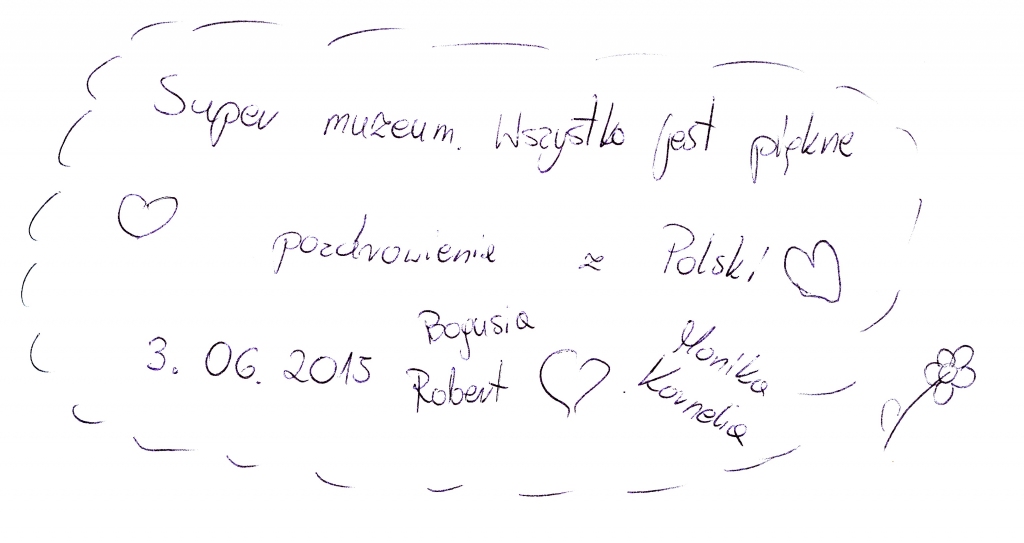 Super muzeum. Wszystko jest piękne
pozdrowienia z Polski
3. 06. 2015 Bogusia Monika
Robert Kornelia